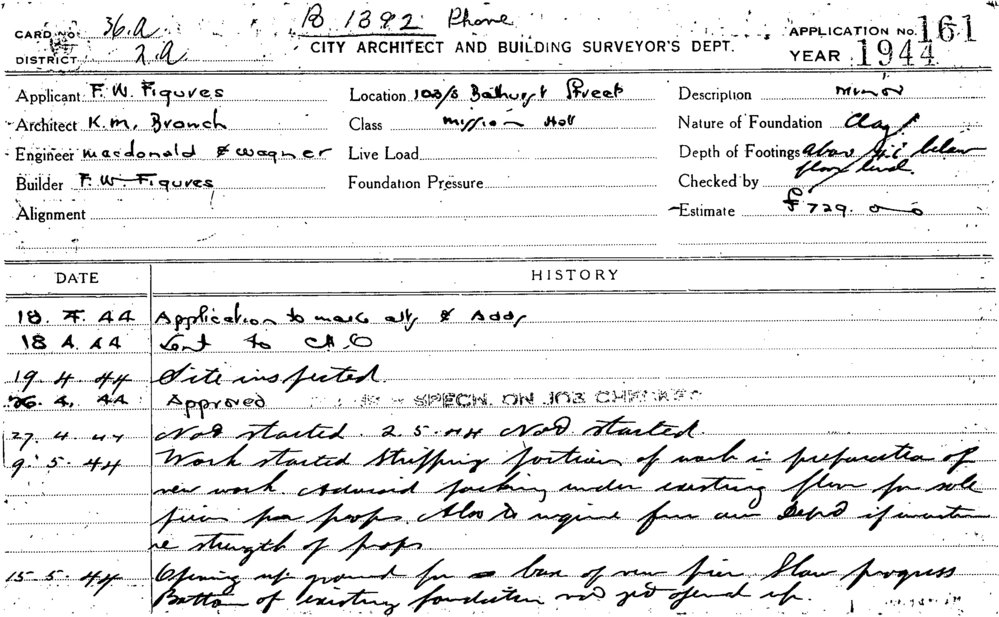 B 1392 Phone
CARD NO. 36.a
DISTRICT 2.a
CITY ARCHITECT AND BUILDING SURVEYOR'S DEPT.
APPLICATION NO. 161
YEAR 1944
Applicant F. W. Figures
Location Bathurst Street
Description minor
Architect K. M. Branch
Class mission Hall
Nature of Foundation Clay
Engineer macdonald & wagner
Live Load
Depth of Footings above below
floor level.
Builder F. W. Figures
Foundation Pressure
Checked by
Alignment
Estimate £729. 0 0
DATE
HISTORY
18. 4. 44 Application to make alts & Adds
18 4. 44 Sent to
19. 4. 44 Site inspected.
26. 4. 44 Approved SPECN. ON JOB CHECKED
27. 4. 44 Not started. 2. 5. 44 Not started
9. 5. 44 Work started Stripping portion of work in preparation of
new work. Advised packing under existing floor for sole
for props. Also to from our Dept if
re strength of props
15. 5. 44 Opening up ground for base of new pier Slow progress
Bottom of existing foundation not yet opened up.